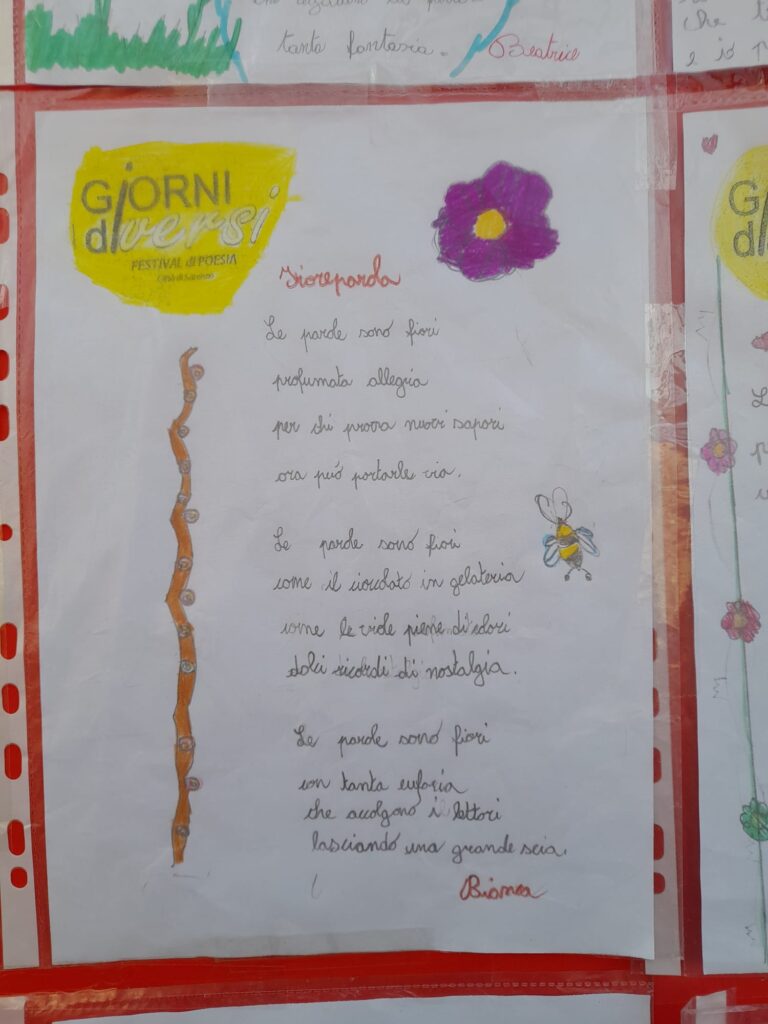 tanta fantasia.
Beatrice
che
e io
GiORNI
diversi
FESTIVAL di POESIA
Fioreparola
Le parole sono fiori
profumata allegria
per chi prova nuovi sapori
ora può portarle via.
Le parole sono fiori
come il cioccolato in gelateria
come le viole piene di odori
dolci ricordi di nostalgia.
Le parole sono fiori
con tanta euforia
che accolgono i lettori
lasciando una grande scia.
Bianca